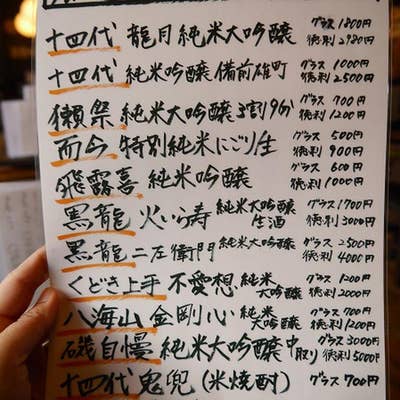 十四代 龍月 純米大吟醸 グラス 1800円 徳利 2980円
十四代 純米吟醸 備前雄町 グラス 1000円 徳利 2500円
獺祭 純米大吟醸 3割9分 グラス 700円 徳利 1200円
而今 特別純米にごり生 グラス 500円 徳利 900円
飛露喜 純米吟醸 グラス 600円 徳利 1000円
黒龍 火いら寿 純米大吟醸 生酒 グラス 1700円 徳利 3000円
黒龍 二左衛門 純米大吟醸 グラス 2500円 徳利 4000円
くどき上手 不愛想 純米大吟醸 グラス 1200円 徳利 2000円
八海山 金剛心 純米大吟醸 グラス 700円 徳利 1200円
磯自慢 純米大吟醸 中取り グラス 3000円 徳利 5000円
十四代 鬼兜 (米焼酎) グラス 700円